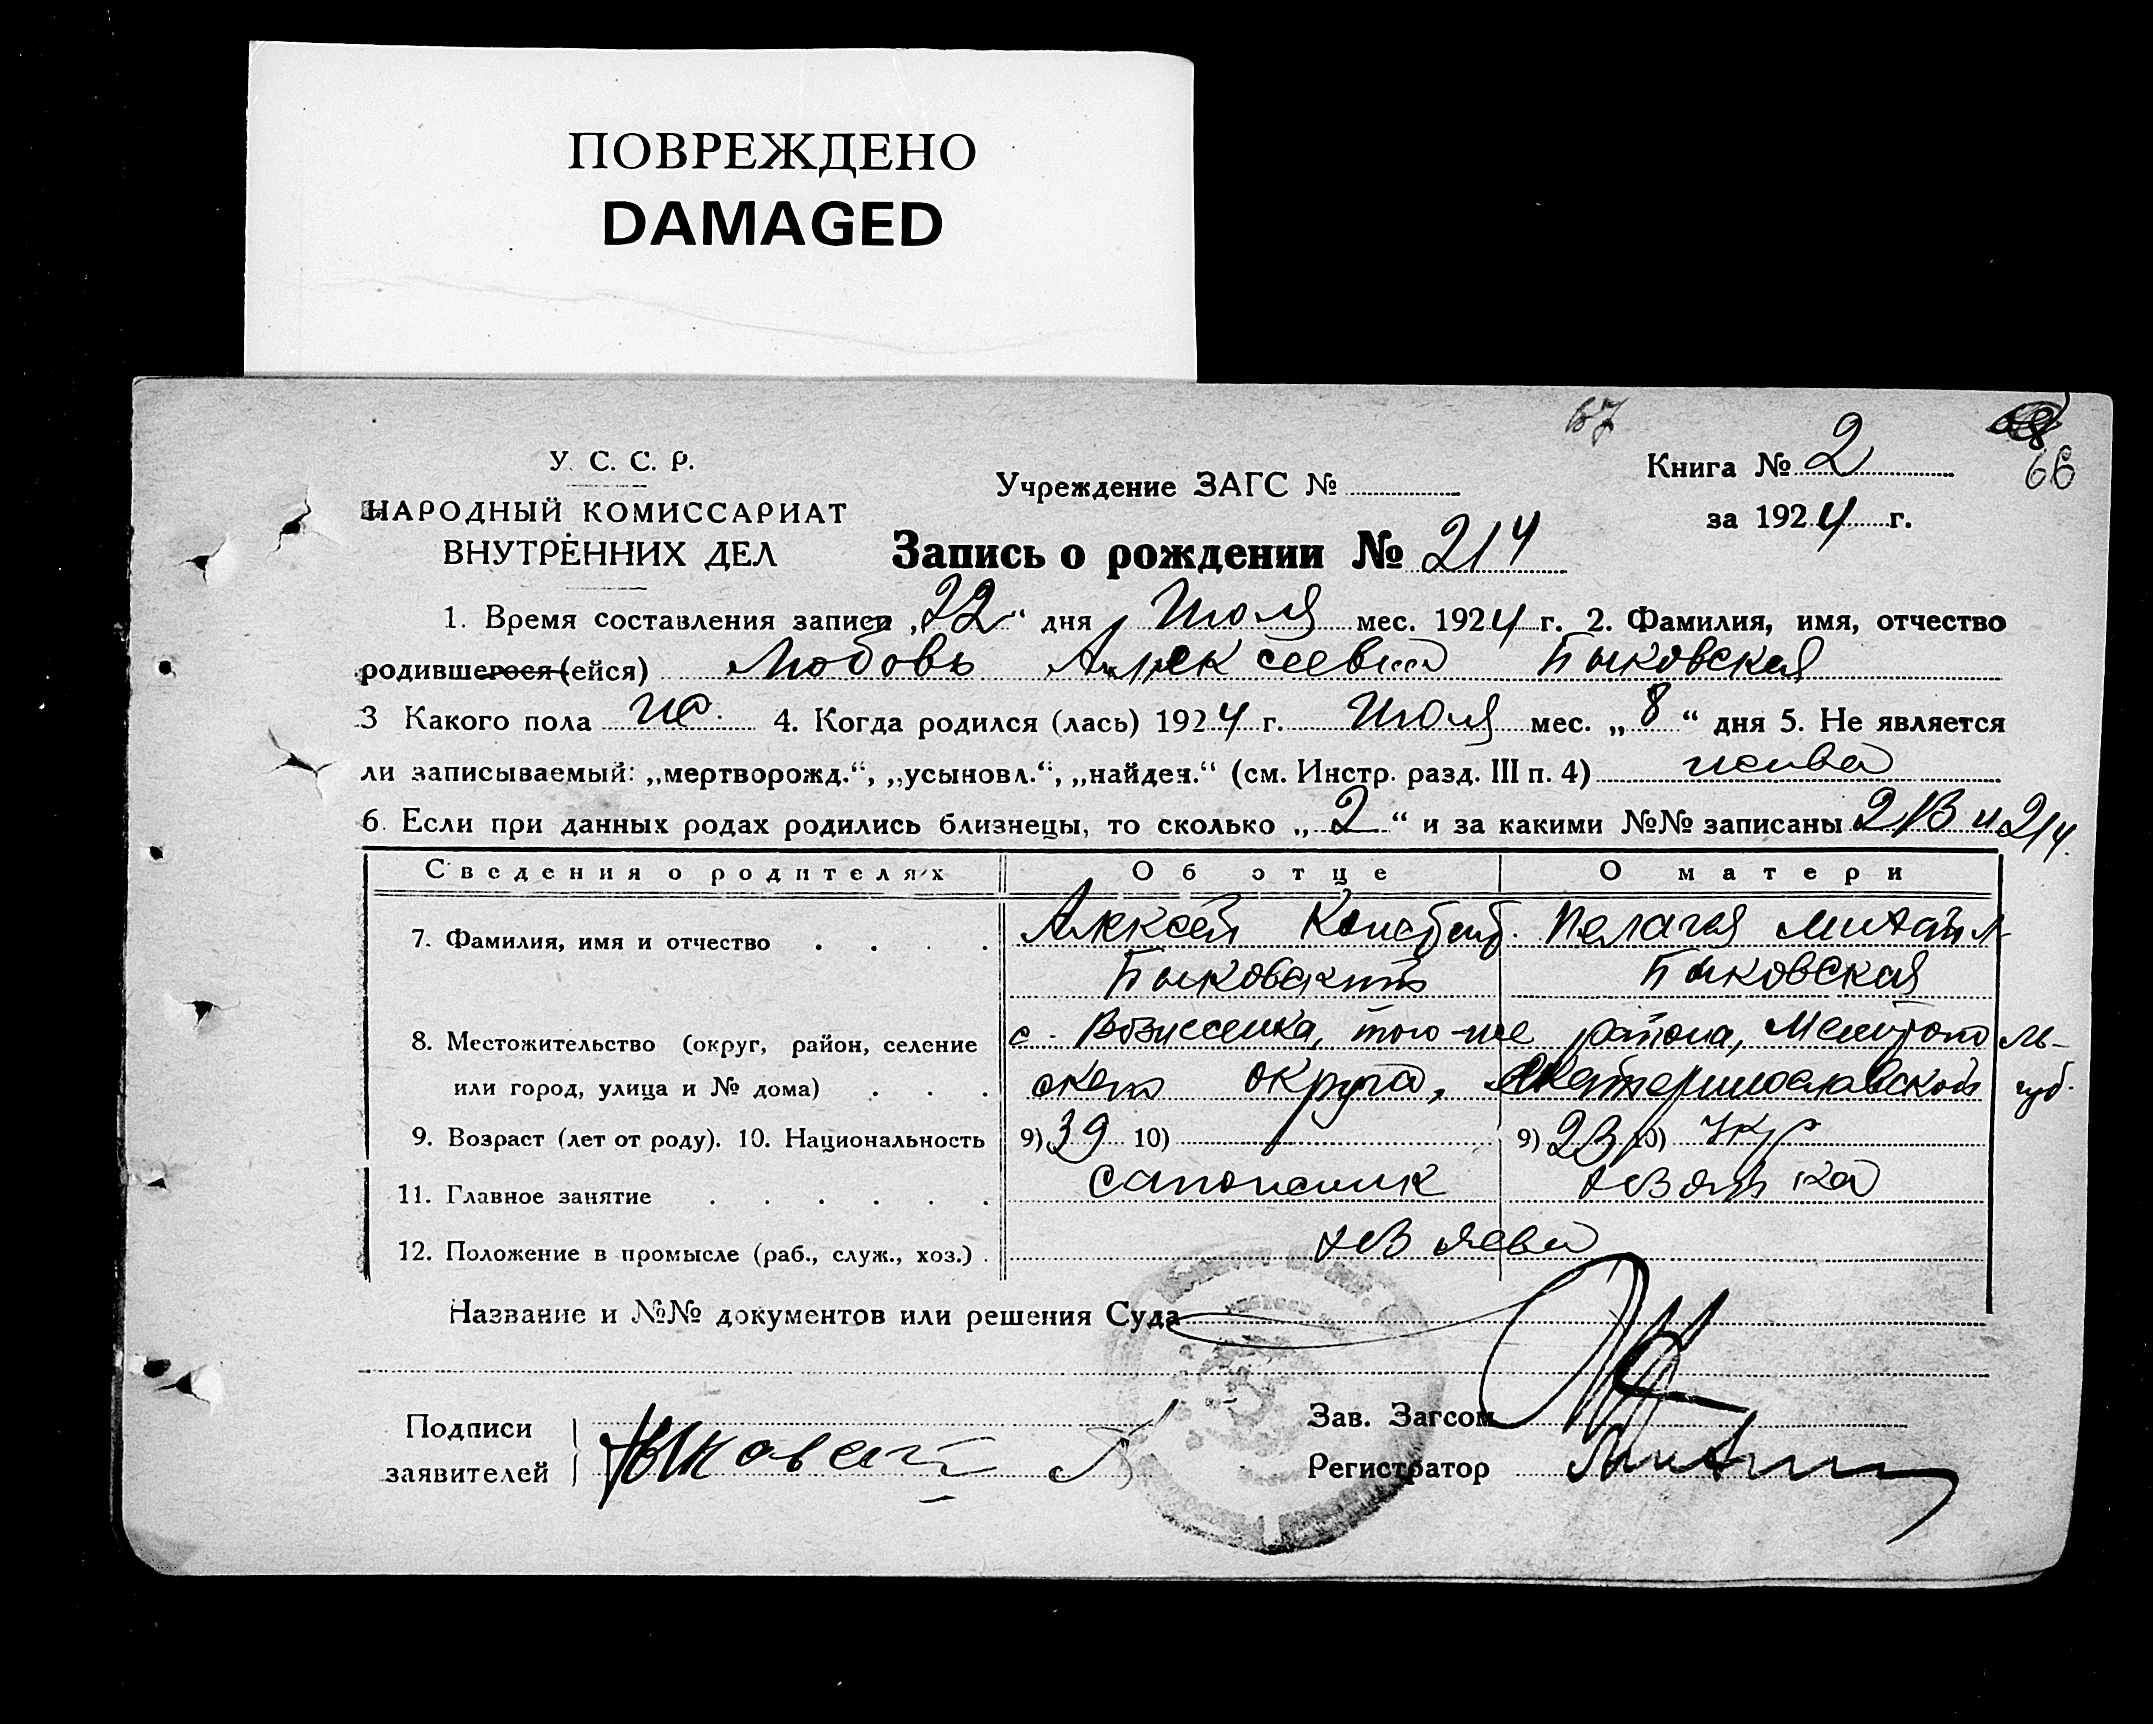 ПОВРЕЖДЕНО
DAMAGED
67
66
У. С. С. Р.
НАРОДНЫЙ КОМИССАРИАТ
ВНУТРЕННИХ ДЕЛ
Учреждение ЗАГС №
Книга № 2
за 1924 г.
Запись о рождении № 214
1. Время составления записи „22“ дня Июля мес. 1924 г. 2. Фамилия, имя, отчество
родившегося (ейся) Любовь Алексеевна Быковская
3 Какого пола ж. 4. Когда родился (лась) 1924 г. Июля мес. „8“ дня 5. Не является
ли записываемый: „мертворожд.“, „усыновл.“, „найден.“ (см. Инстр. разд. III п. 4) жива
6. Если при данных родах родились близнецы, то сколько „2“ и за какими №№ записаны 213 и 214.
Сведения о родителях Об отце О матери
7. Фамилия, имя и отчество Алексей Констант. Пелагея Михайл
Быковский Быковская
8. Местожительство (округ, район, селение с. Вознесенка, того-же района, Мелитополь-
или город, улица и № дома) ского округа, Екатеринославской губ.
9. Возраст (лет от роду). 10. Национальность 9) 39 10) 9) 23 10) Укр
11. Главное занятие сапожник хозяйка
12. Положение в промысле (раб., служ., хоз.) хозяева
Название и №№ документов или решения Суда
Подписи
заявителей Быковский А
Зав. Загсом
Регистратор